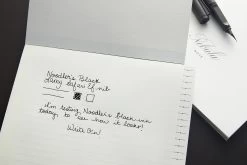 Noodler's Black
Lamy Safari ef nib
I'm testing Noodler's black ink
today to see how it looks!
Write On!